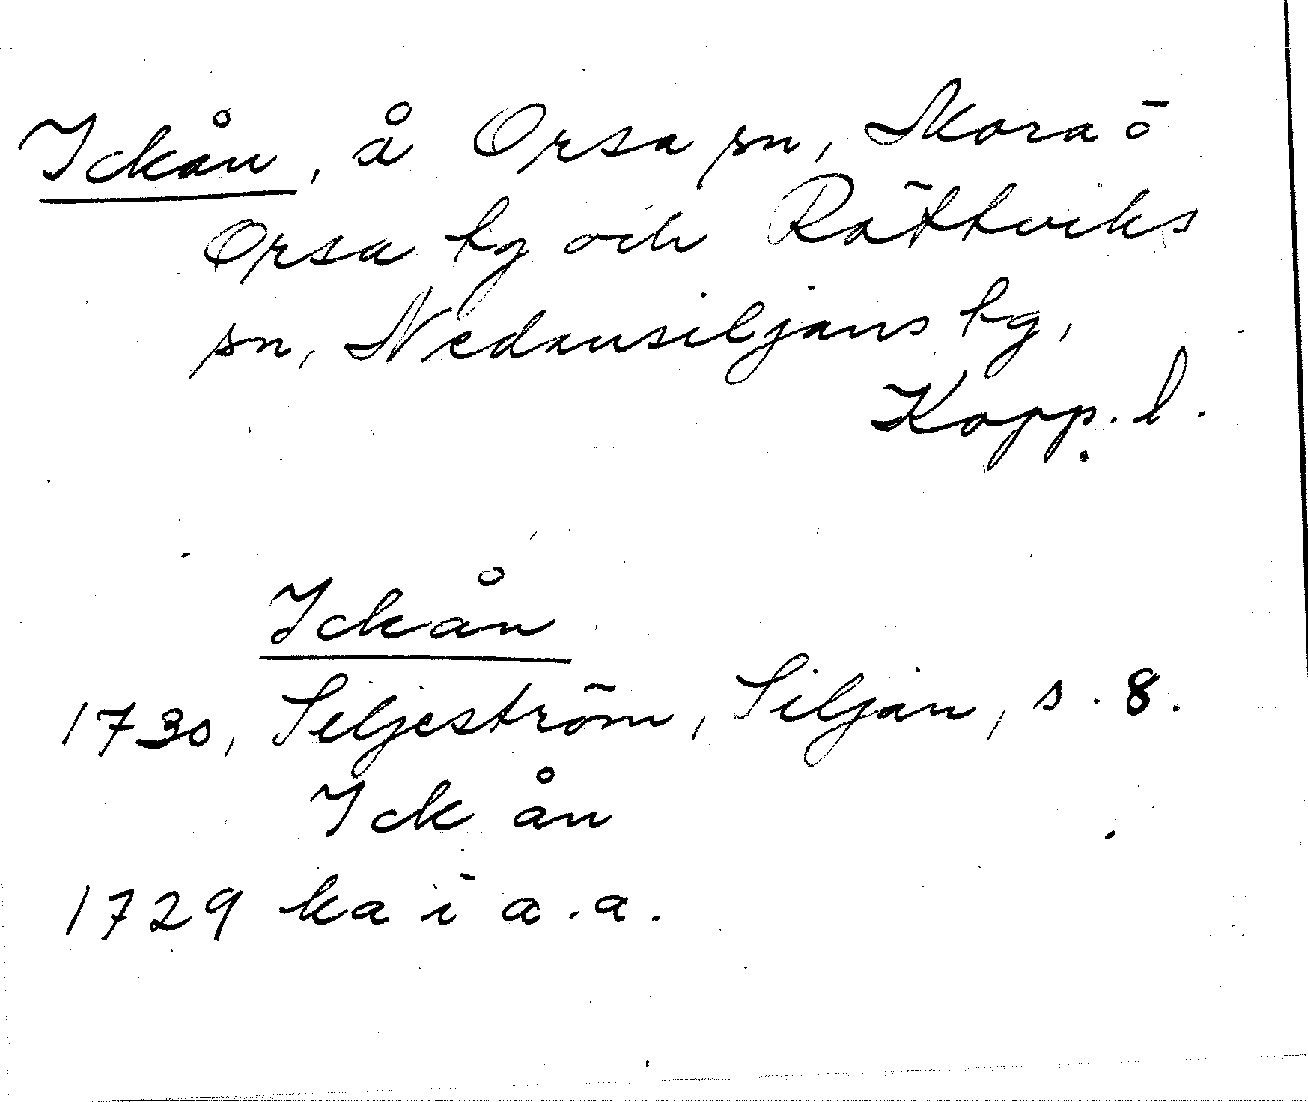 Ickån, å Orsa sn, Mora o
Orsa tg och Rättviks
sn, Nedansiljans tg,
Kopp. l.
Ickån
1730, Siljeström, Siljan, s. 8.
Ick ån
1729 ka i a.a.